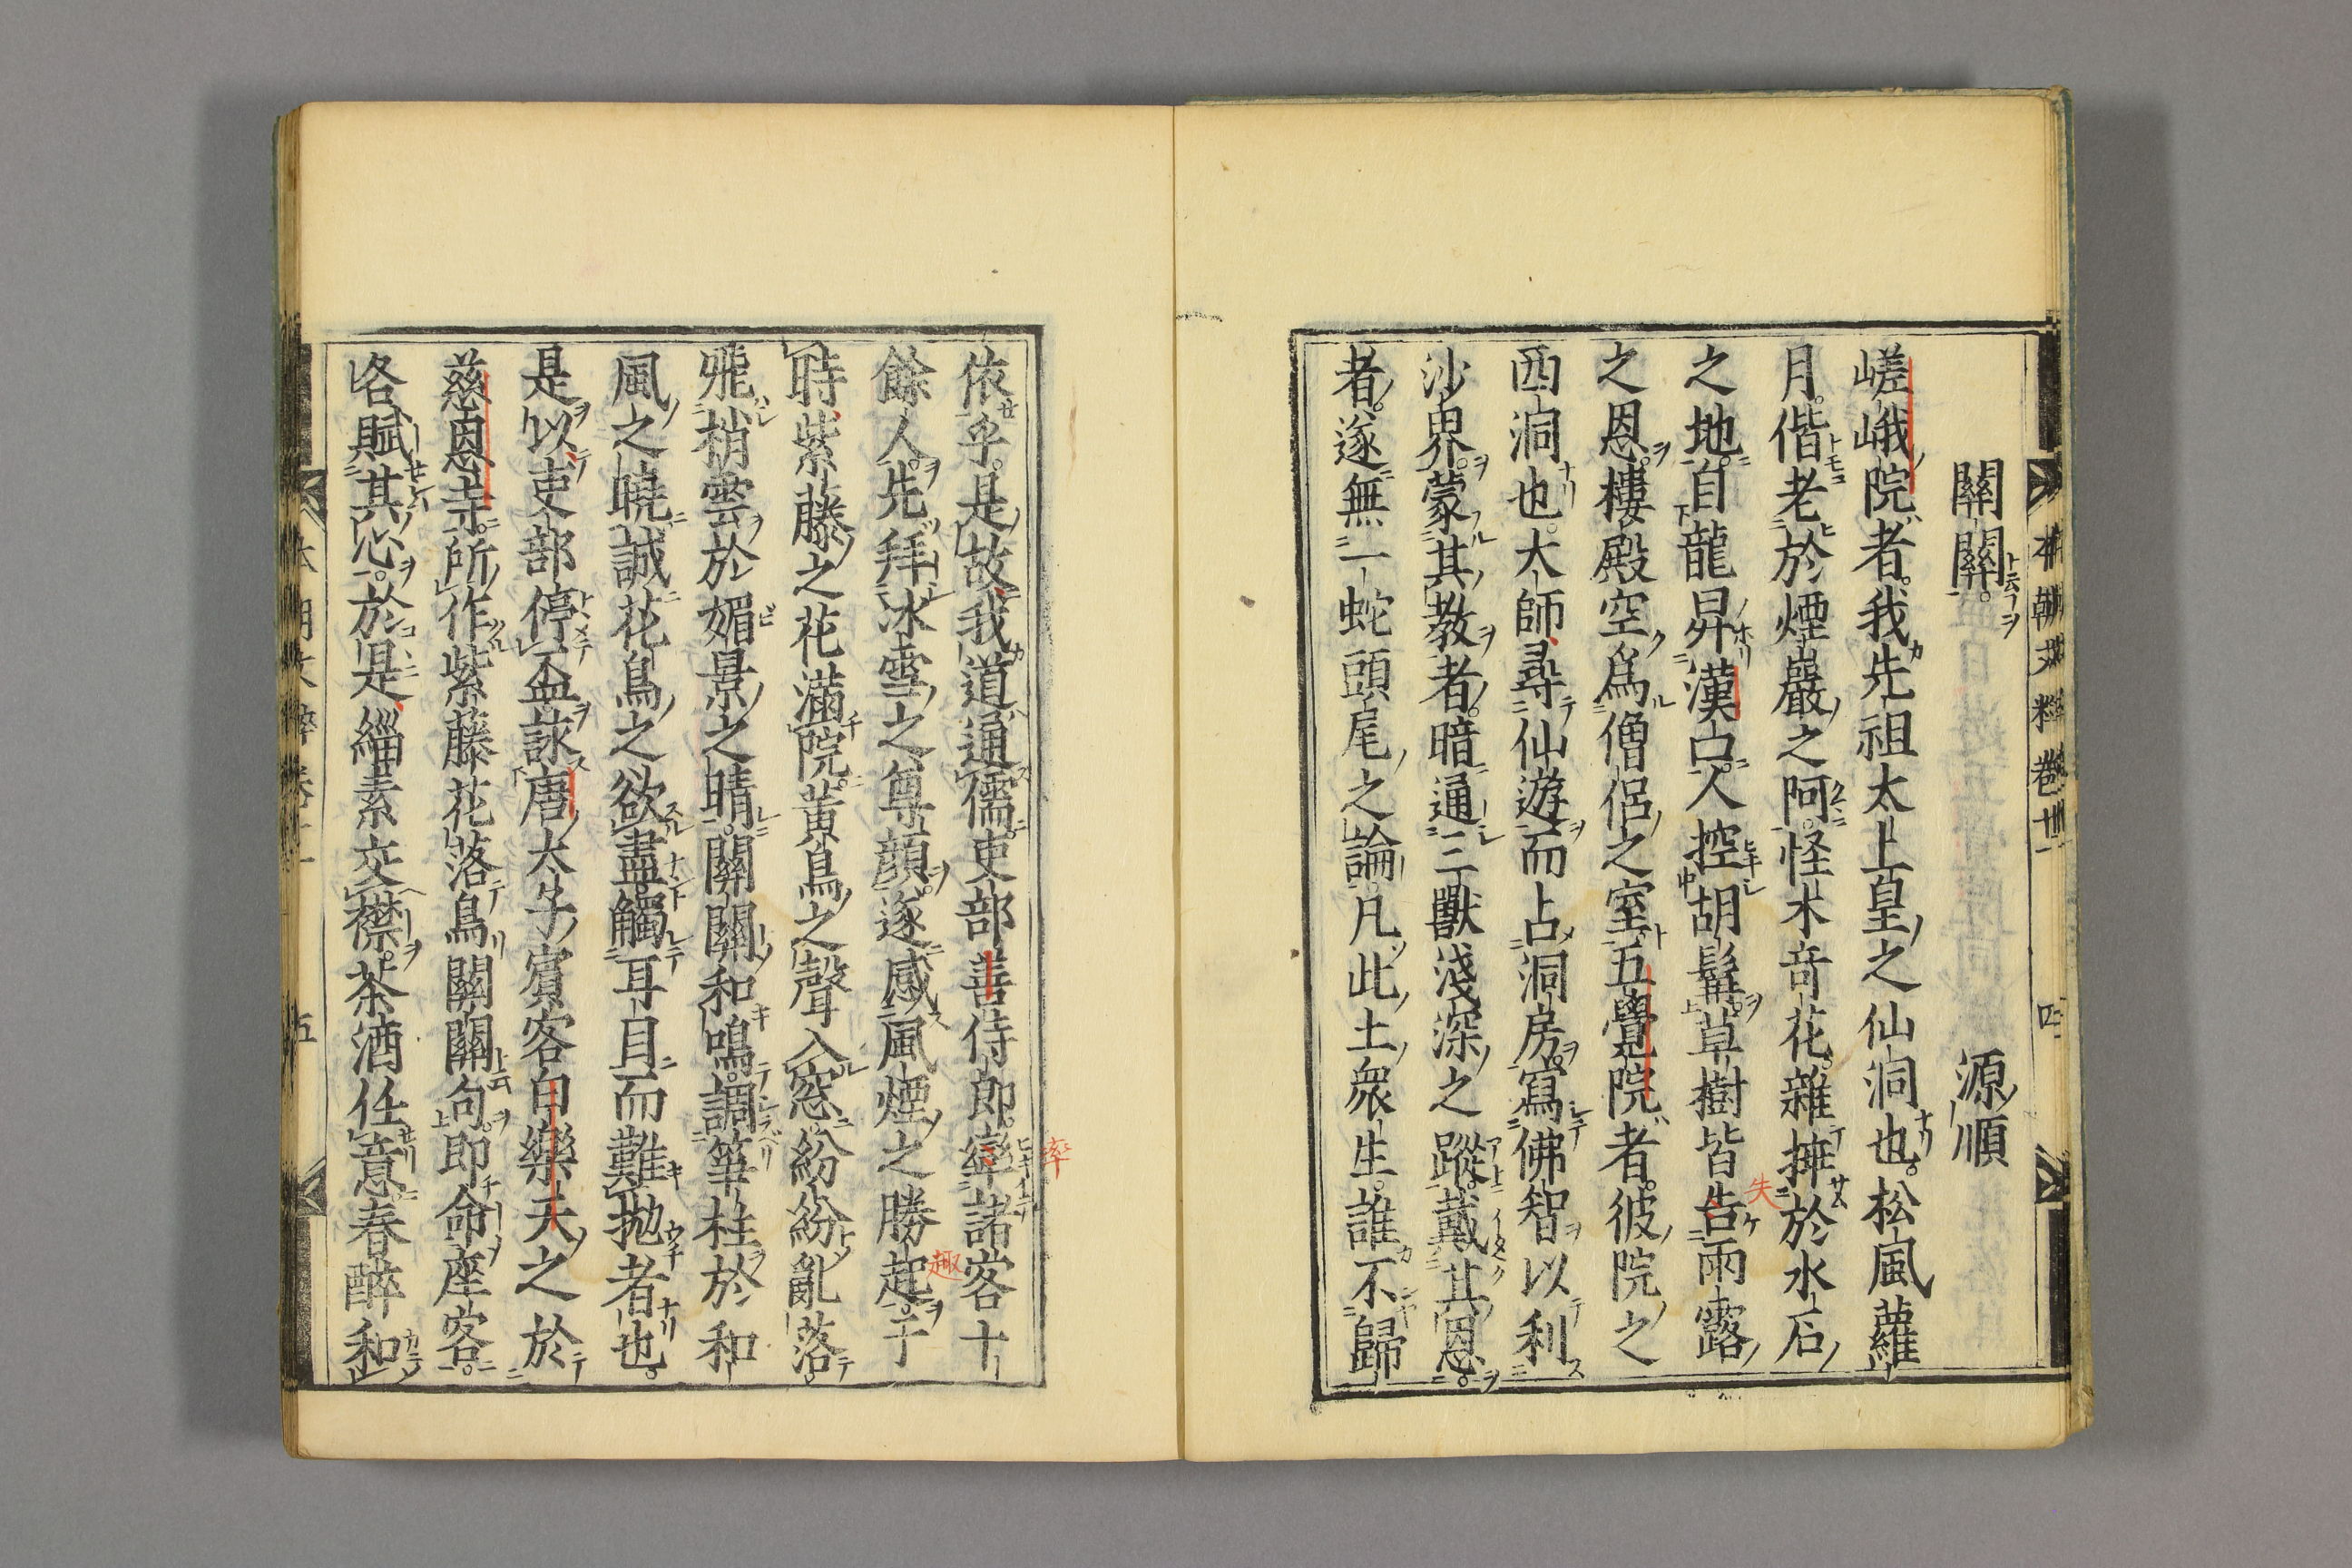 關關。 源順
嵯峨院者。我先祖太上皇之仙洞也。松風蘿
月。偕老於煙巖之阿。怪木奇花。雜挿於水石
之地。自龍昇漢六人控胡髯。草樹皆告雨露
之恩。樓殿空爲僧侶之室。五覺院者。彼院之
西洞也。大師尋仙遊而占洞房。寫佛智以利
沙界。蒙其教者。暗通三獸淺深之蹤。戴其恩。
者。遂無一蛇頭尾之論。凡此土衆生。誰不歸
本朝文粹卷十一 四
依乎。是故我道通儒吏部善侍郎。率諸客十
率
餘人。先拜冰雪之尊顔。遂感風煙之勝起。于
趣
時紫藤之花滿院。黃鳥之聲入窓。紛紛亂落。
飛梢雲於媚景之晴。關關和鳴。調箏柱於和
風之曉。誠花鳥之欲盡。觸耳目而難抛者也。
是以吏部停盃詠唐太子賓客白樂天之於
慈恩寺。所作紫藤花落鳥關關句。即命座客。
各賦其心。於是緇素交襟。茶酒任意。春醉和
失
五